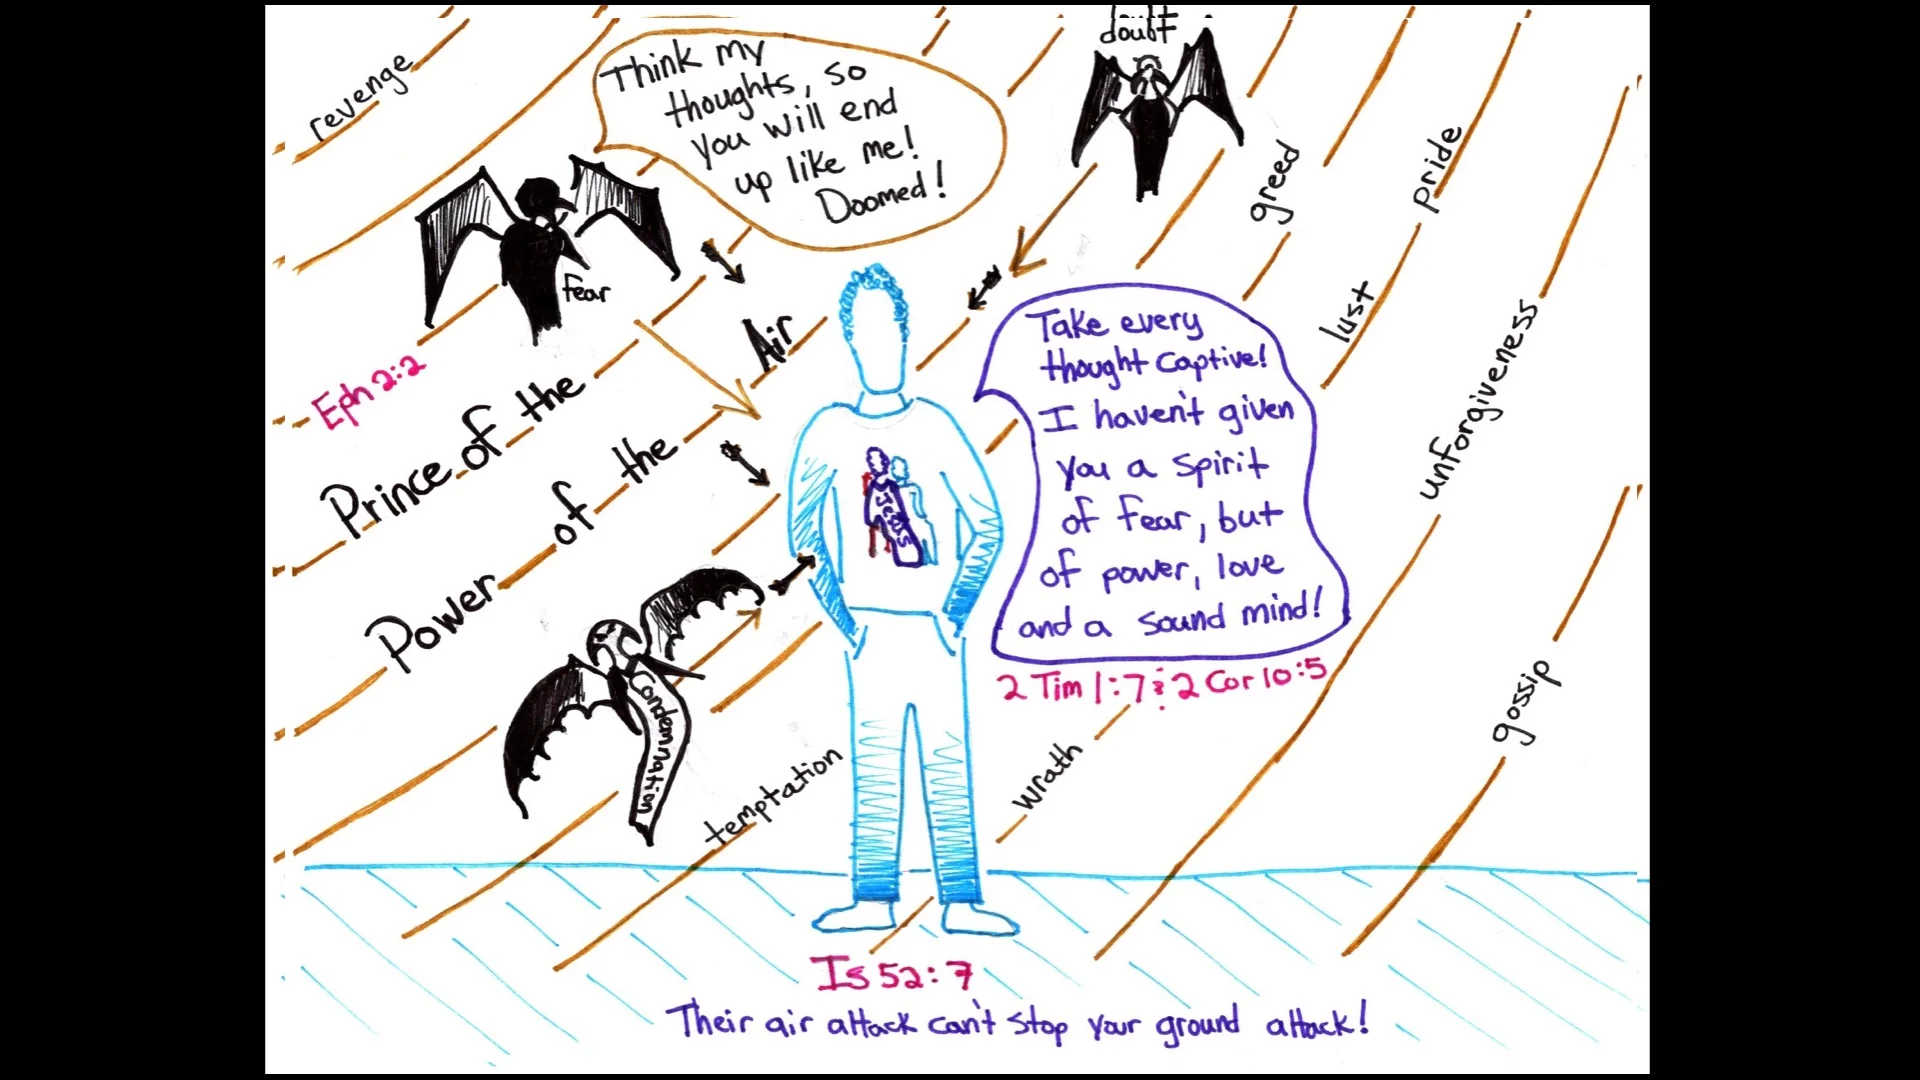 doubt
revenge
Think my
thoughts, so
you will end
up like me!
Doomed!
greed
pride
lust
fear
Eph 2:2
Prince of the Air
Power of the
Take every
thought captive!
I haven't given
you a spirit
of fear, but
of power, love
and a sound mind!
2 Tim 1:7 & 2 Cor 10:5
Jesus
unforgiveness
Condemnation
temptation
wrath
gossip
Is 52:7
Their air attack can't stop your ground attack!